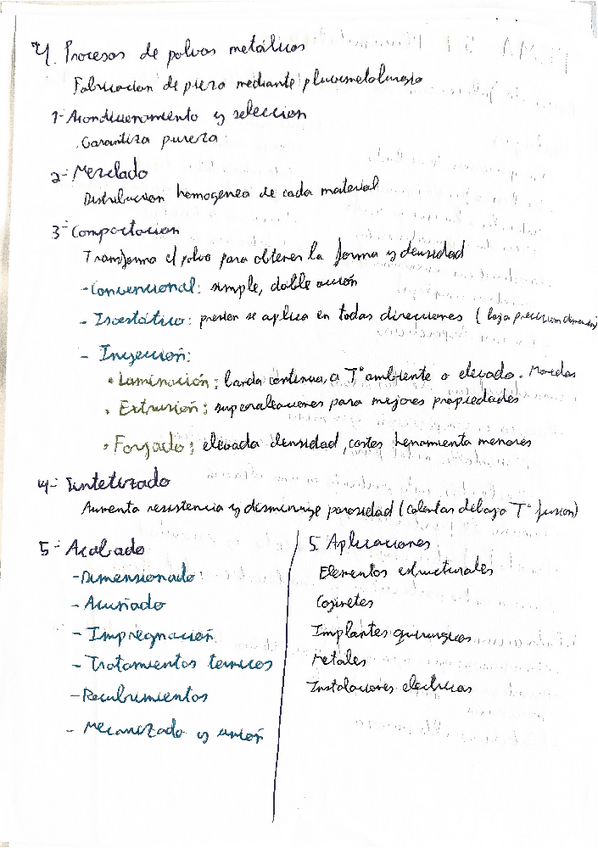 4. Procesos de polvos metálicos
Fabricacion de pieza mediante pluvimetalurgia
1- Acondicionamiento y seleccion
Garantiza pureza
2- Mezclado
Distribucion homogenea de cada material
3- Compactacion
Transforma el polvo para obtener la forma y densidad
- Convencional: simple, doble acción
- Isostático: presion se aplica en todas direcciones (baja precision dimension)
- Inyección:
• Laminación; banda continua, a Tª ambiente o elevada. Monedas
• Extrusión; superaleaciones para mejores propiedades
• Forjado; elevada densidad, costes herramienta menores
4- Sintetizado
Aumenta resistencia y disminuye porosidad (calentar debajo Tª fusion)
5- Acabado
- Dimensionado
- Acuñado
- Impregnación
- Tratamientos termicos
- Recubrimientos
- Mecanizado y unión
5. Aplicaciones
Elementos estructurales
Cojinetes
Implantes quirurgicos
Metales
Instalaciones electricas